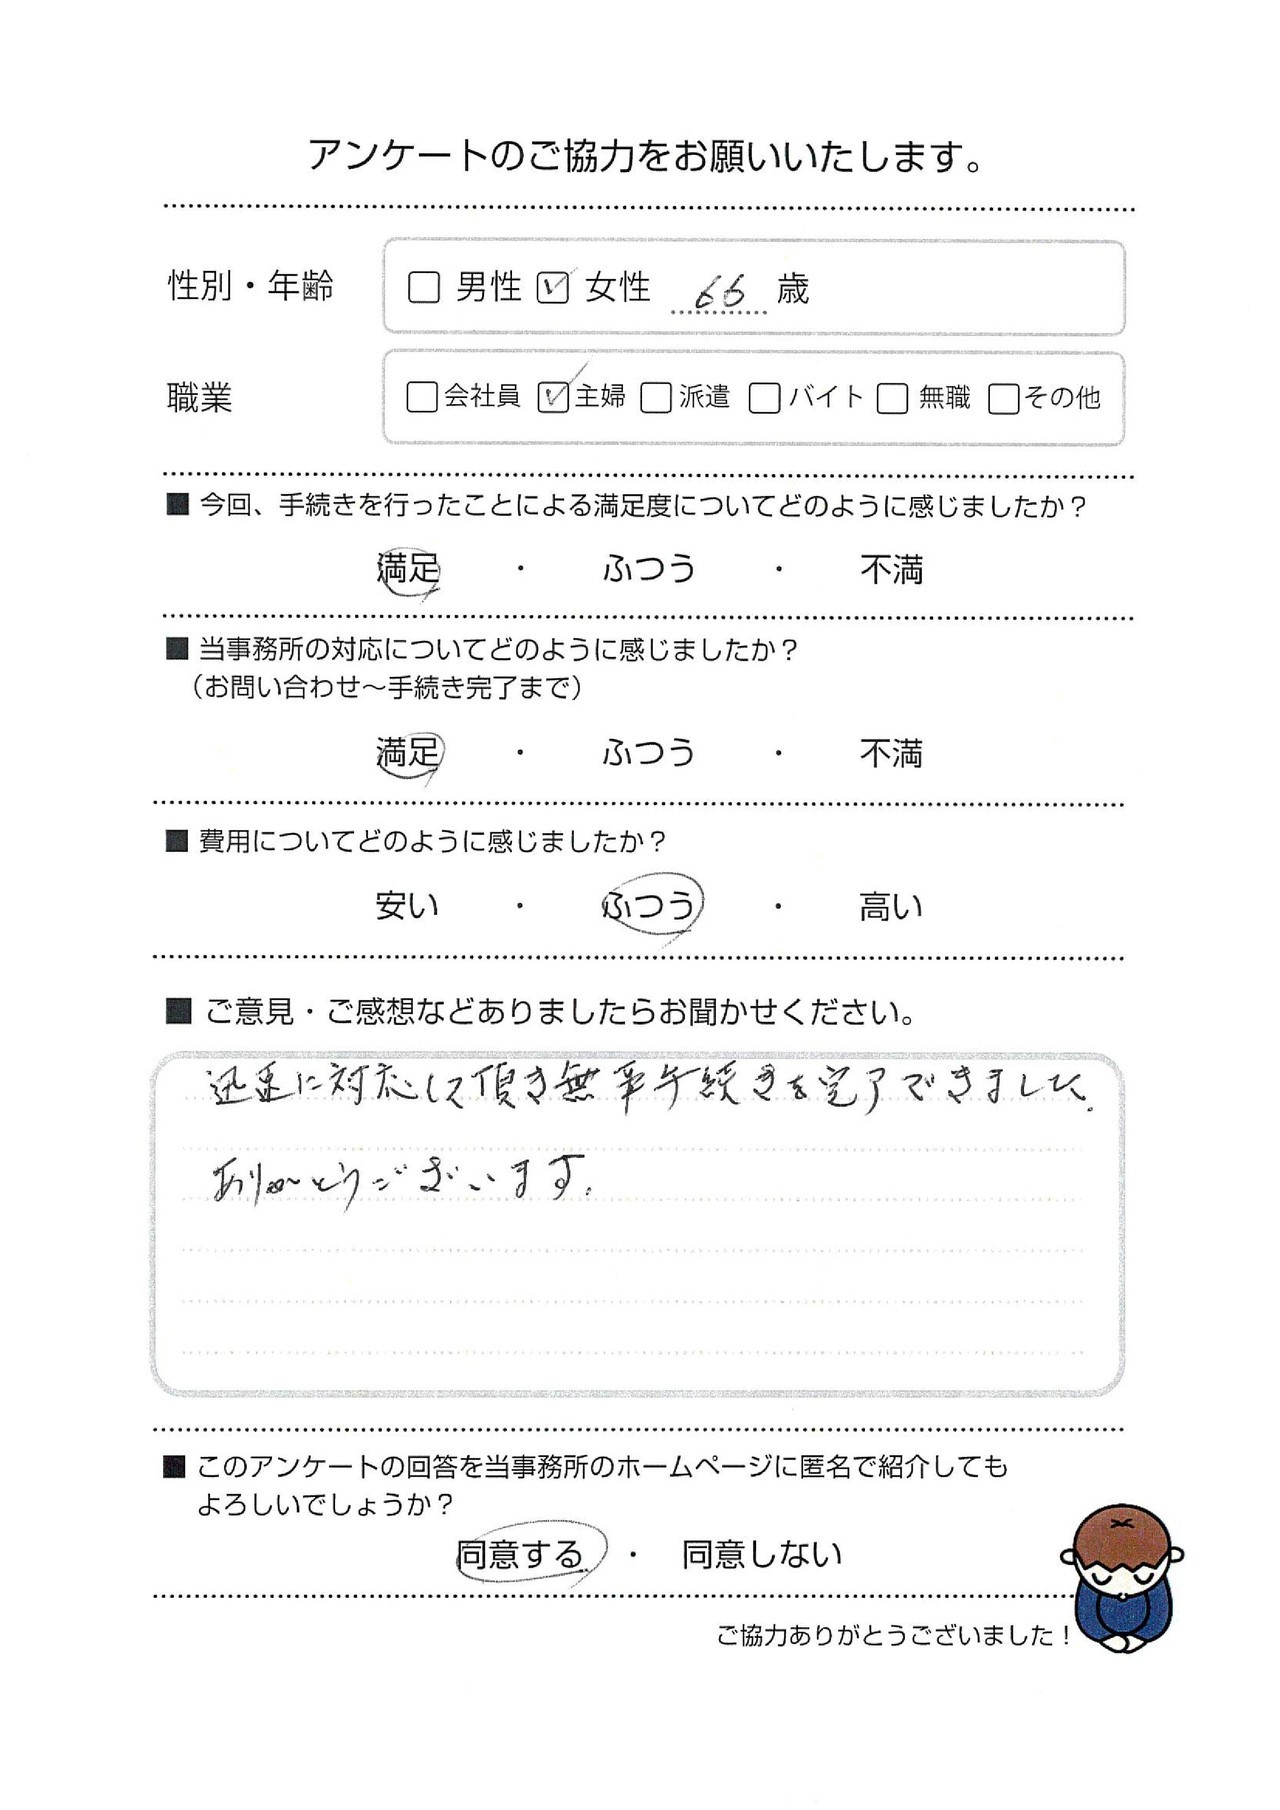 アンケートのご協力をお願いいたします。
性別・年齢 □ 男性 ☑ 女性 66 歳
職業 □会社員 ☑主婦 □派遣 □バイト □無職 □その他
■ 今回、手続きを行ったことによる満足度についてどのように感じましたか？
満足 ・ ふつう ・ 不満
■ 当事務所の対応についてどのように感じましたか？
（お問い合わせ～手続き完了まで）
満足 ・ ふつう ・ 不満
■ 費用についてどのように感じましたか？
安い ・ ふつう ・ 高い
■ ご意見・ご感想などありましたらお聞かせください。
迅速に対応して頂き無事手続きを完了できました。
ありがとうございます。
■ このアンケートの回答を当事務所のホームページに匿名で紹介しても
よろしいでしょうか？
同意する ・ 同意しない
ご協力ありがとうございました！